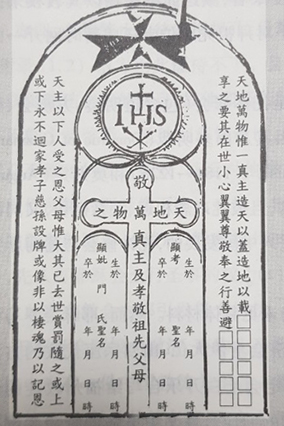 IHS
天地萬物惟一真主造天以蓋造地以載□□□□□
享之要其在世小心翼翼尊敬奉之行善避□□□□□
敬
天地萬物之
真主及孝敬祖先父母
生於 年 月 日 時
顯考 聖名
卒於 年 月 日 時
生於 年 月 日 時
顯妣 門 氏聖名
卒於 年 月 日 時
天主以下人受之恩父母惟大其已去世賞罰隨之或上
或下永不迴家孝子慈孫設牌或像非以棲魂乃以記恩